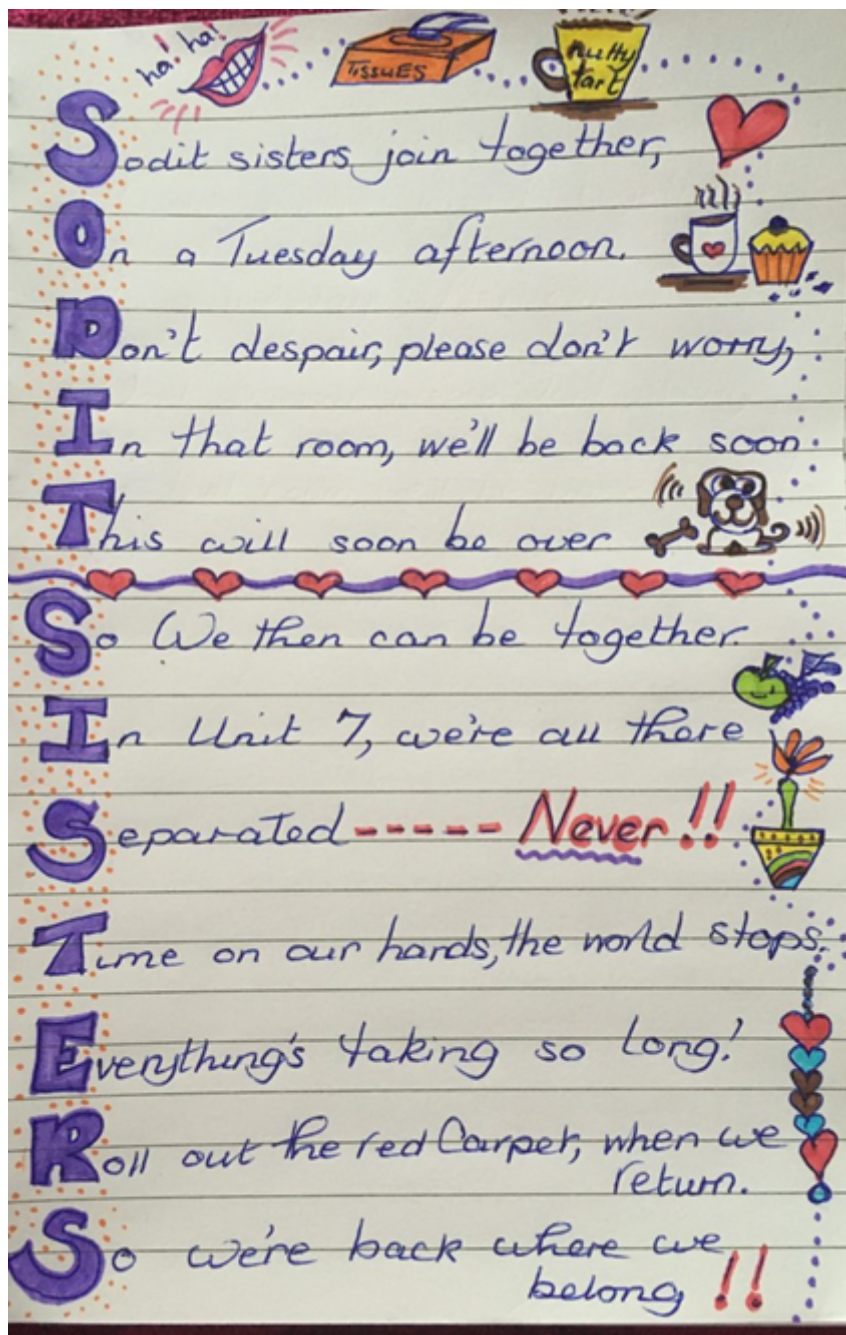 ha! ha!
TISSUES
nutty
tart
Sodit sisters join together,
On a Tuesday afternoon.
Don't despair, please don't worry,
In that room, we'll be back soon.
This will soon be over
So We then can be together.
In Unit 7, we're all there
Separated ----- Never!!
Time on our hands, the world stops.
Everything's taking so long!
Roll out the red Carpet, when we
return.
So we're back where we
belong !!